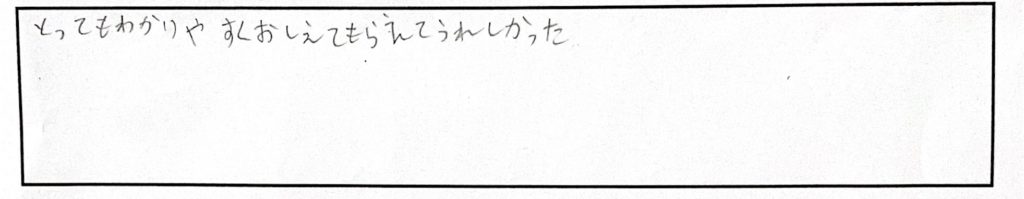 とってもわかりやすくおしえてもらえてうれしかった